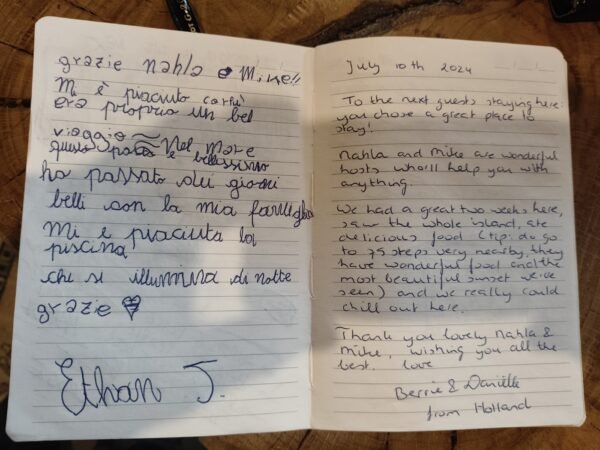 grazie Nahla e Mike!!
Mi è piaciuto
era proprio un bel
viaggio Nel Mare
questo posto è bellissimo
ho passato dei giorni
belli con la mia famiglia
Mi è piaciuta la
piscina
che si illumina di notte
grazie
Ethan J.
July 10th 2024
To the next guests staying here:
you chose a great place to
stay!
Nahla and Mike are wonderful
hosts who'll help you with
anything.
We had a great two weeks here,
saw the whole island, ate
delicious food (tip: do go
to 75 steps very nearby, they
have wonderful food and the
most beautiful sunset we've
seen) and we really could
chill out here.
Thank you lovely Nahla &
Mike, wishing you all the
best. love
Berrie & Daniëlle
from Holland